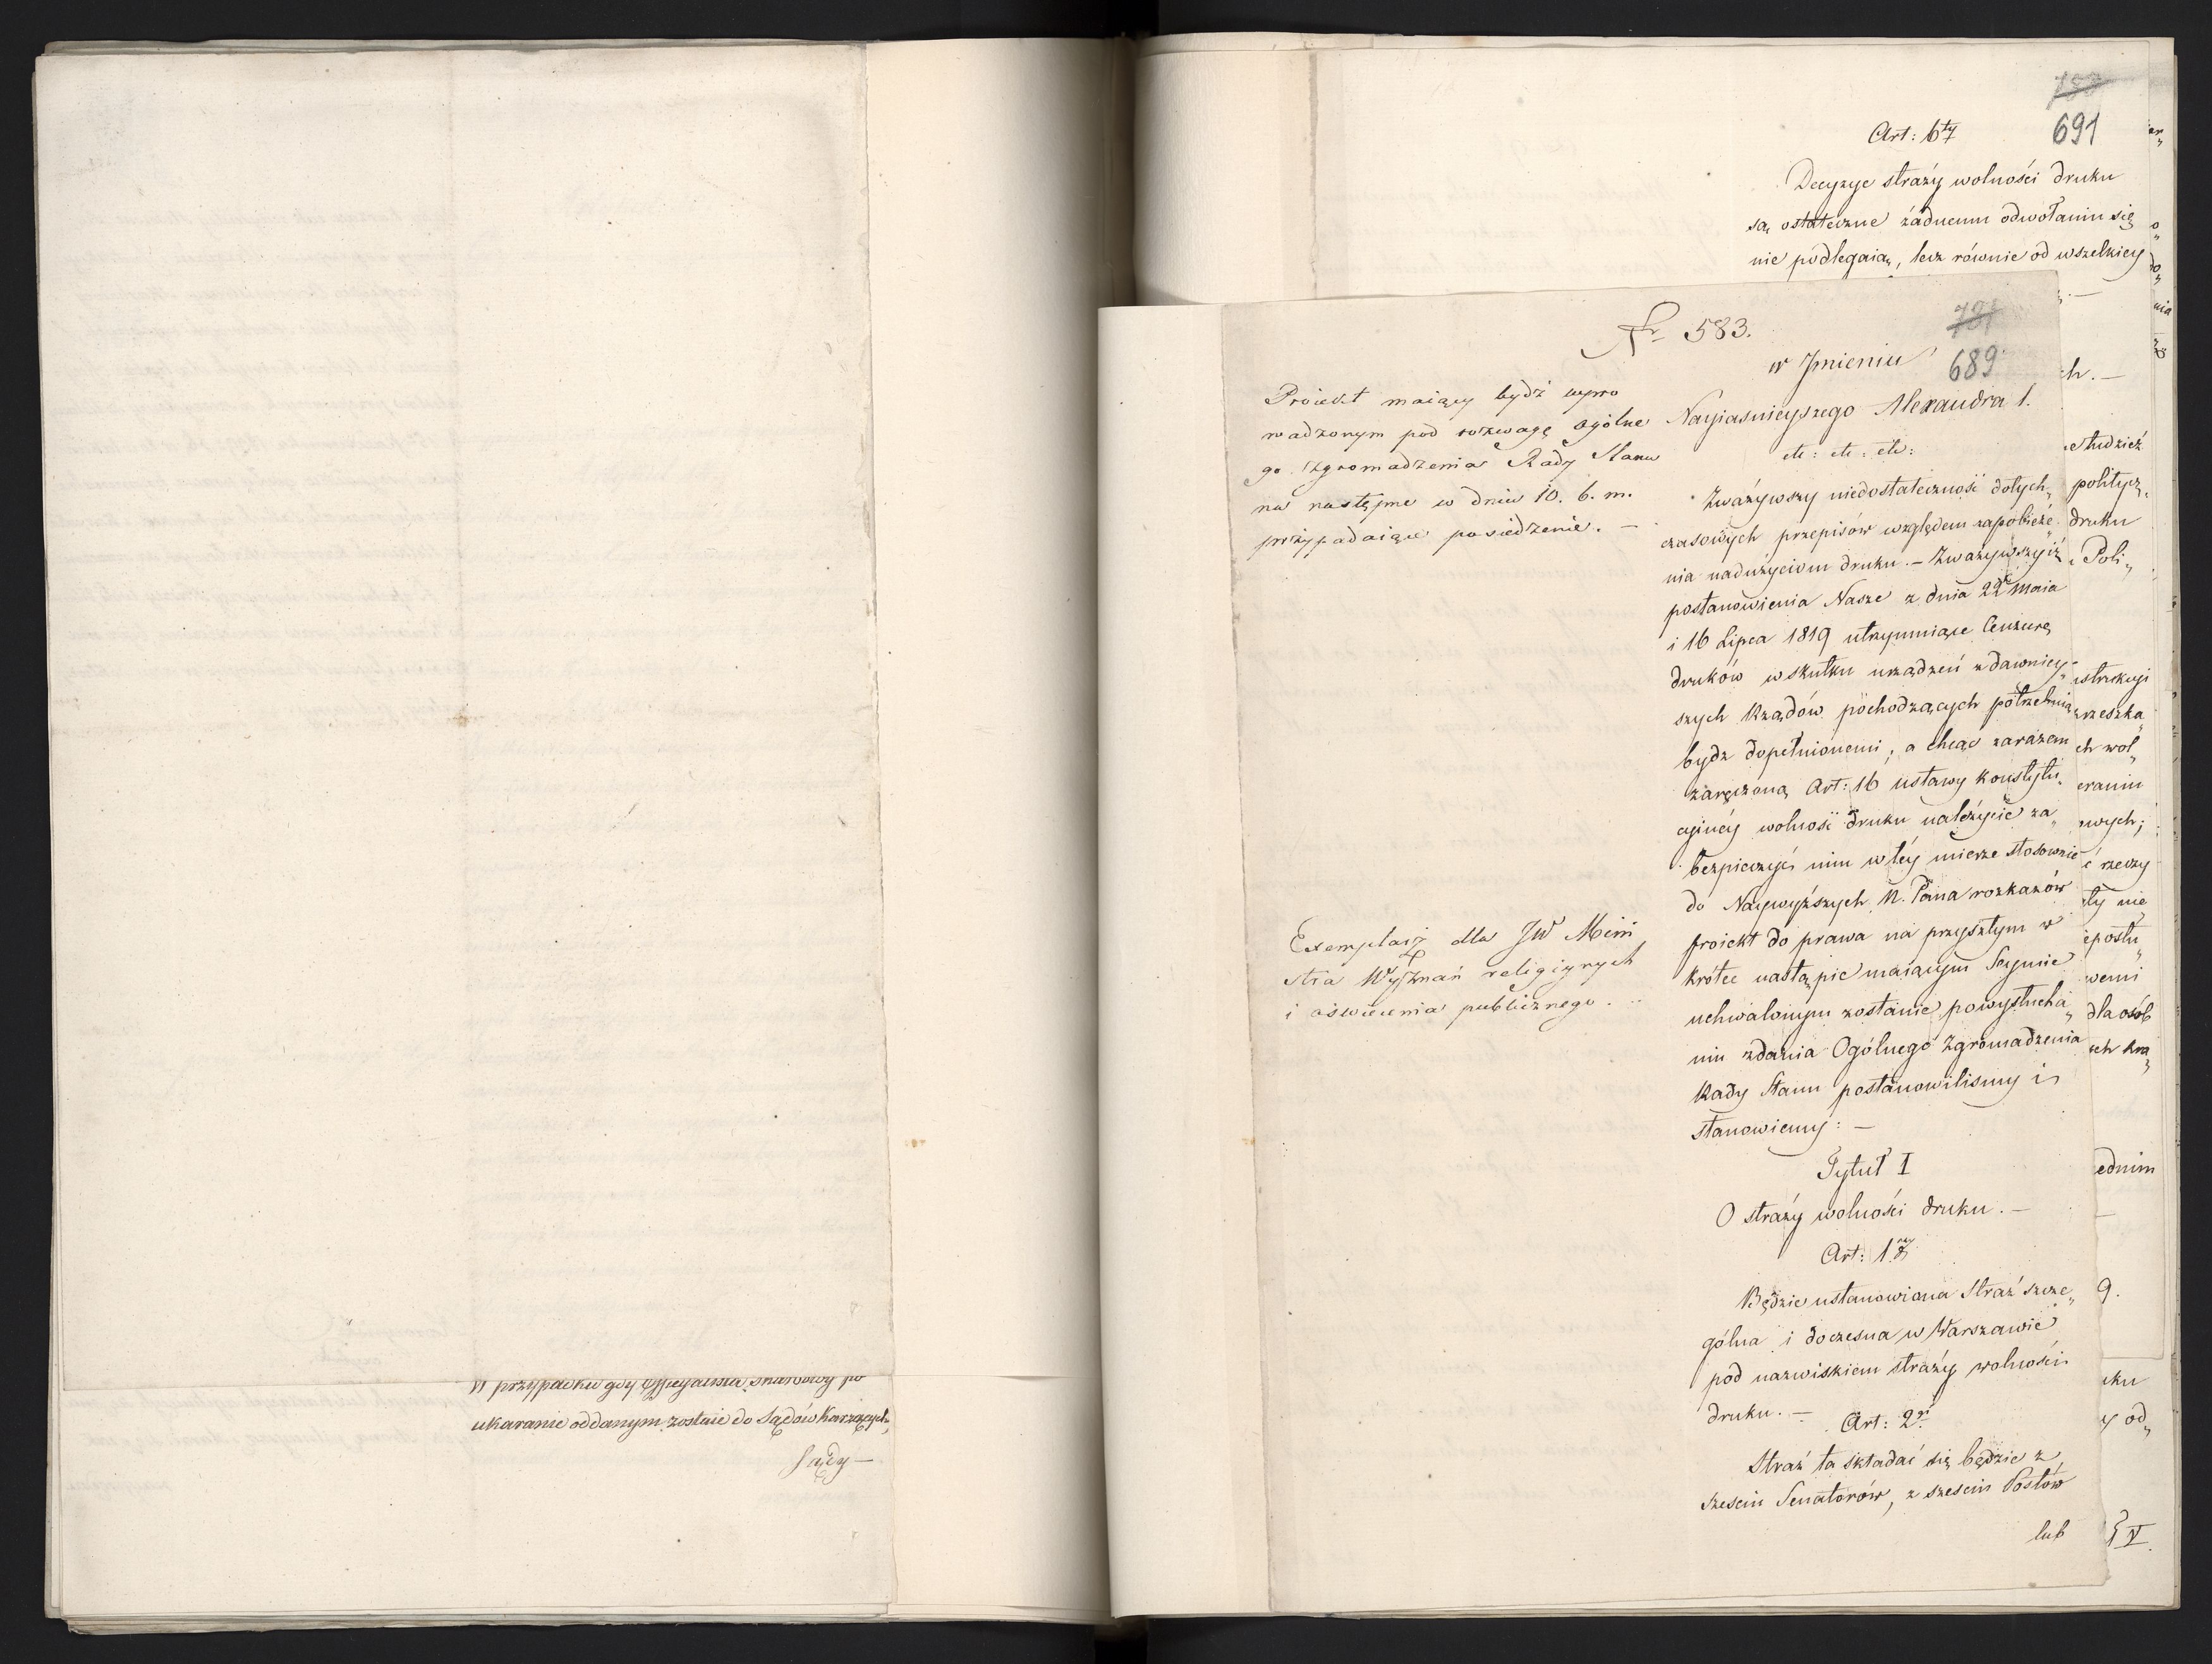 W przypadku gdy
ukaranie oddanym zostaie do Sądów Karzących,
Sądy —
691
Art: 6ty
Decyzye straży wolności druku
są ostateczne żadnemu odwołaniu się
nie podlegaią, lecz równie od wszelkiey
Nr 583.
781
689
Proiekt maiący bydź wpro
wadzonym pod rozwagę ogólne
go Zgromadzenia Rady Stanu
na następne w dniu 10. b. m.
przypadaiące posiedzenie. —
Exemplarz dla JW Mini
stra Wyznań religiynych
i oświecenia publicznego.
w Jmieniu
Nayiaśnieyszego Alexandra 1.
etc: etc: etc:
Zważywszy niedostateczność dotych„
czasowych przepisów względem zapobieże„
nia nadużyciom druku. — Zważywszy iż
postanowienia Nasze z dnia 22 Maia
i 16 Lipca 1819 utrzymuiące Cenzurę
druków w skutku urządzeń z dawniey„
szych Rządów pochodzących potrzebuią
bydz dopełnionemi; a chcąc zarazem
zaręczoną Art: 16 ustawy konstytu„
cyinéy wolność druku należycie za„
bezpieczyć nim w téy mierze stosownie
do Naywyższych N. Pana rozkazów
proiekt do prawa na przyszłym w
krótce nastąpić maiącym Seymie
uchwalonym zostanie, po wysłucha„
niu zdania Ogólnego Zgromadzenia
Rady Stanu postanowilismy i
stanowiemy: —
Tytuł I
O straży wolności druku. —
Art: 1szy
Będzie ustanowiona Straż szcze„
gólna i doczesna w Warszawie
pod nazwiskiem straży wolności
druku. —
Art: 2gi
Straż ta składać się będzie z
sześciu Senatorów, z sześciu Posłów
lub
ch. —
tudzież
politycz„
druku
Poli„
strukcyi
rzeszka„
ch wol„
eraniu
wych;
rzeczy
ty nie
posłu„
wemi
dla osób
ch kra„
ednim
9.
uku
y od„
§ V.